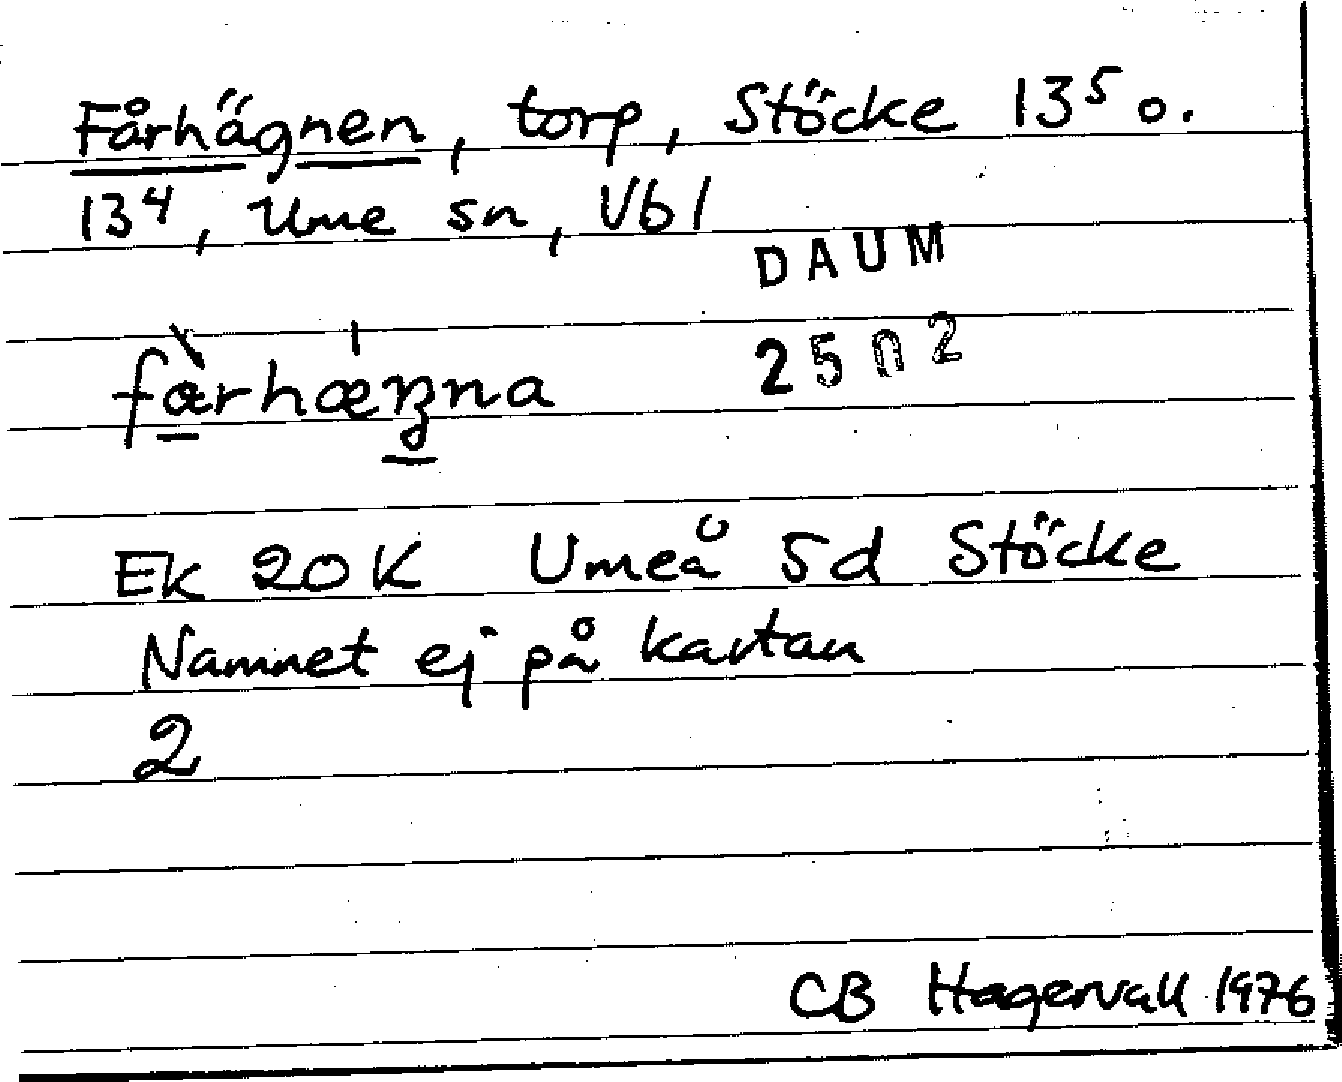 Fårhägnen, torp, Stöcke 13⁵ o.
13⁴, Ume sn, Vbl
DAUM
2502
Ek 20K Umeå 5d Stöcke
Namnet ej på kartan
2
CB Hagervall 1976